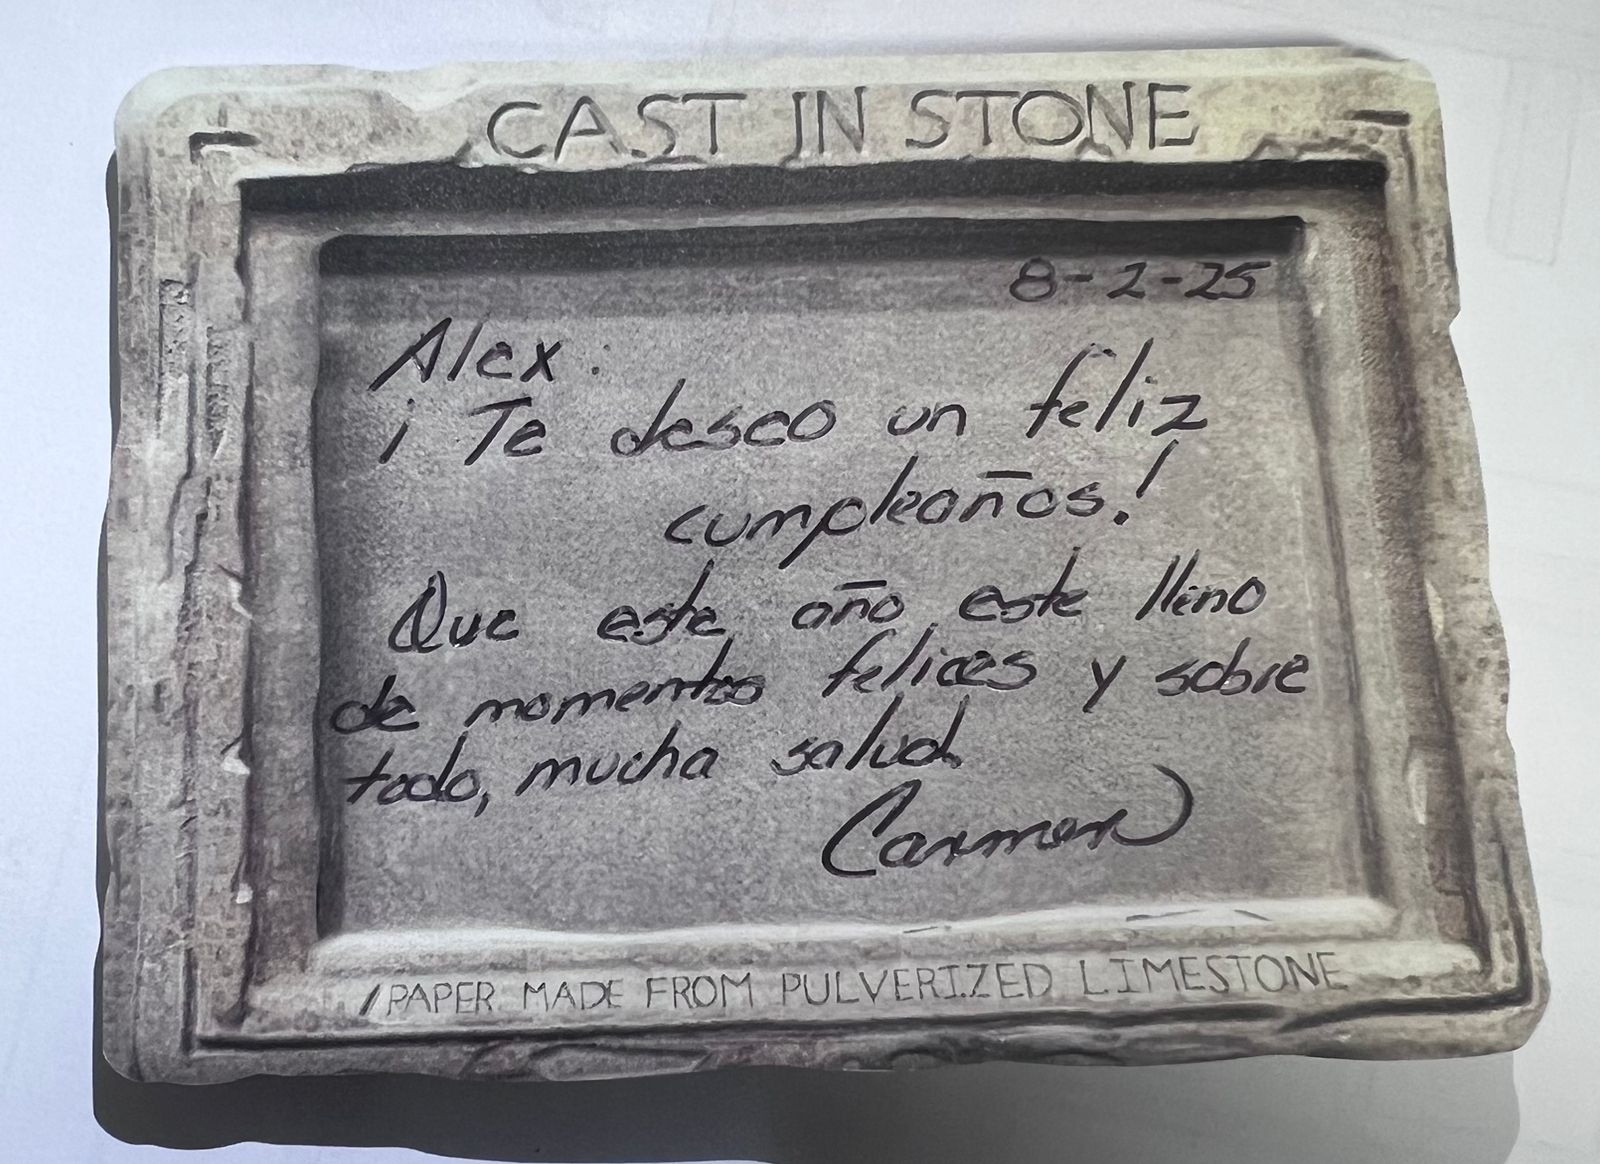 CAST IN STONE
8-2-25
Alex.
¡Te deseo un feliz
cumpleaños!
Que este año este lleno
de momentos felices y sobre
todo, mucha salud.
Carmen
PAPER MADE FROM PULVERIZED LIMESTONE